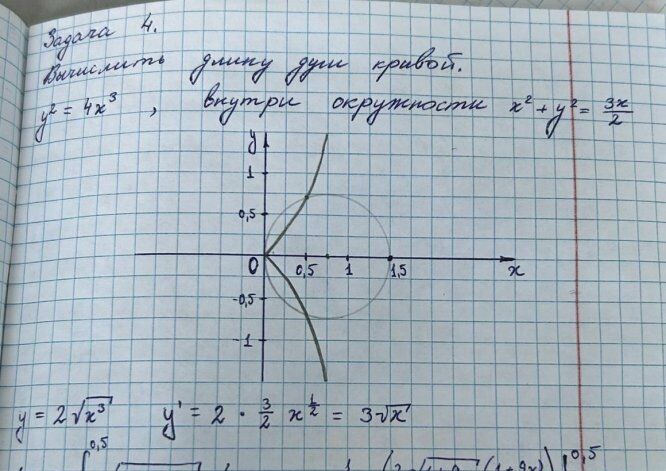 Задача 4.
Вычислить длину дуги кривой.
y² = 4x³ , внутри окружности x² + y² = 3x/2
y
1
0,5
0 0,5 1 1,5 x
-0,5
-1
y = 2√x³ y' = 2 · 3/2 x^(1/2) = 3√x